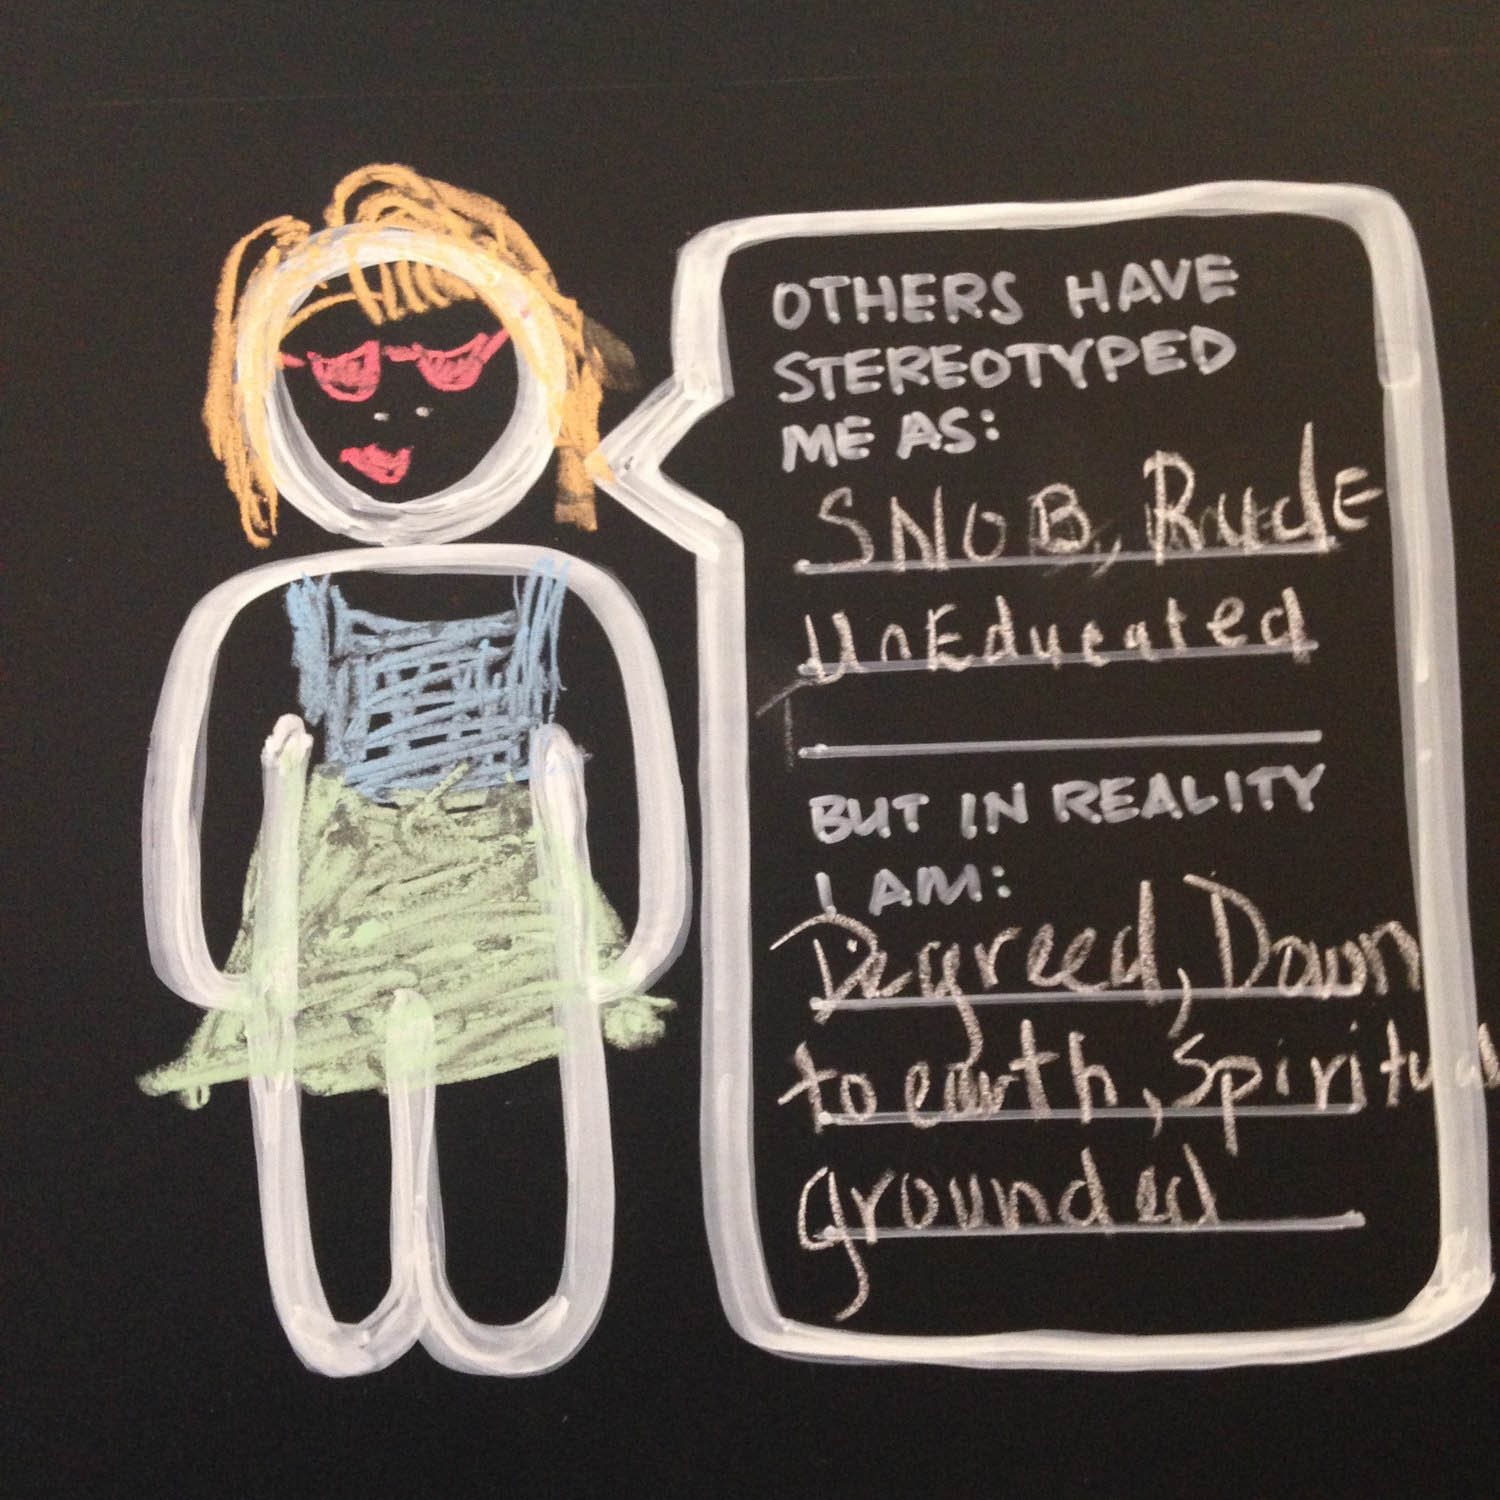 OTHERS HAVE
STEREOTYPED
ME AS:
SNOB, RudE
UnEducated
BUT IN REALITY
I AM:
Degreed, Down
to earth, Spiritual
grounded